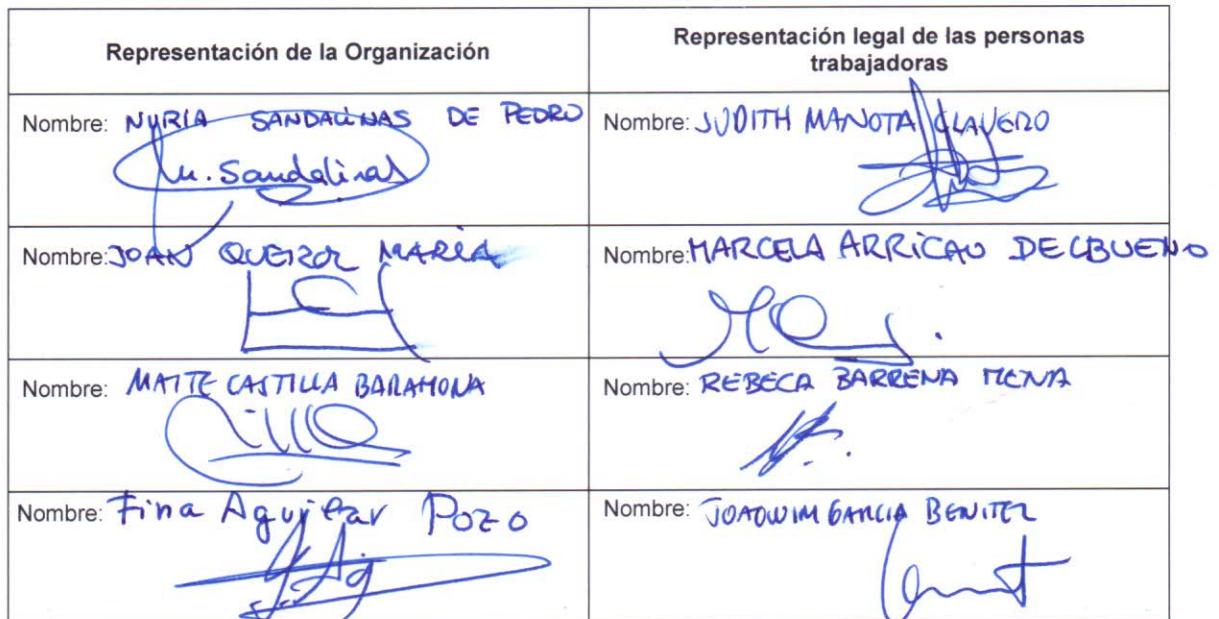 Representación de la Organización
Representación legal de las personas
trabajadoras
Nombre: NURIA SANDALINAS DE PEDRO
Nombre: JUDITH MANOTA CLAVERO
N. Sandalinas
Nombre: JOAN QUEROL MARÍA
Nombre: MARCELA ARRICAU DELBUENO
Nombre: MAITE CASTILLA BARAHONA
Nombre: REBECA BARRENA MENA
Nombre: Fina Aguilar Pozo
Nombre: JOAQUIM GARCIA BENITEZ